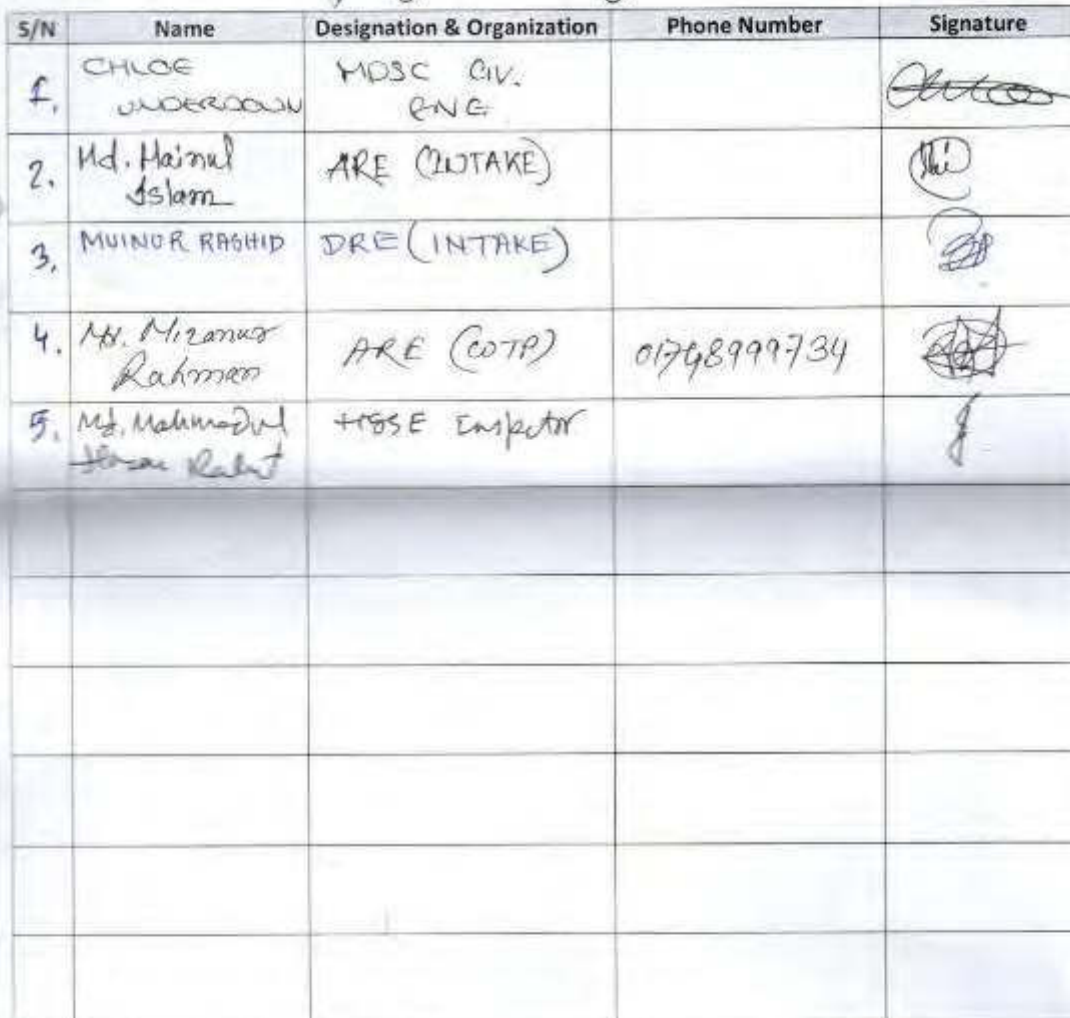 S/N Name Designation & Organization Phone Number Signature
1. CHLOE UNDERDOWN MDSC CIV. ENG.
2. Md. Mainul Islam ARE (INTAKE)
3. MUINUR RASHID DRE (INTAKE)
4. Md. Mizanur Rahman ARE (WTP) 01748999734
5. Md. Mahmudul HSSE Inspector